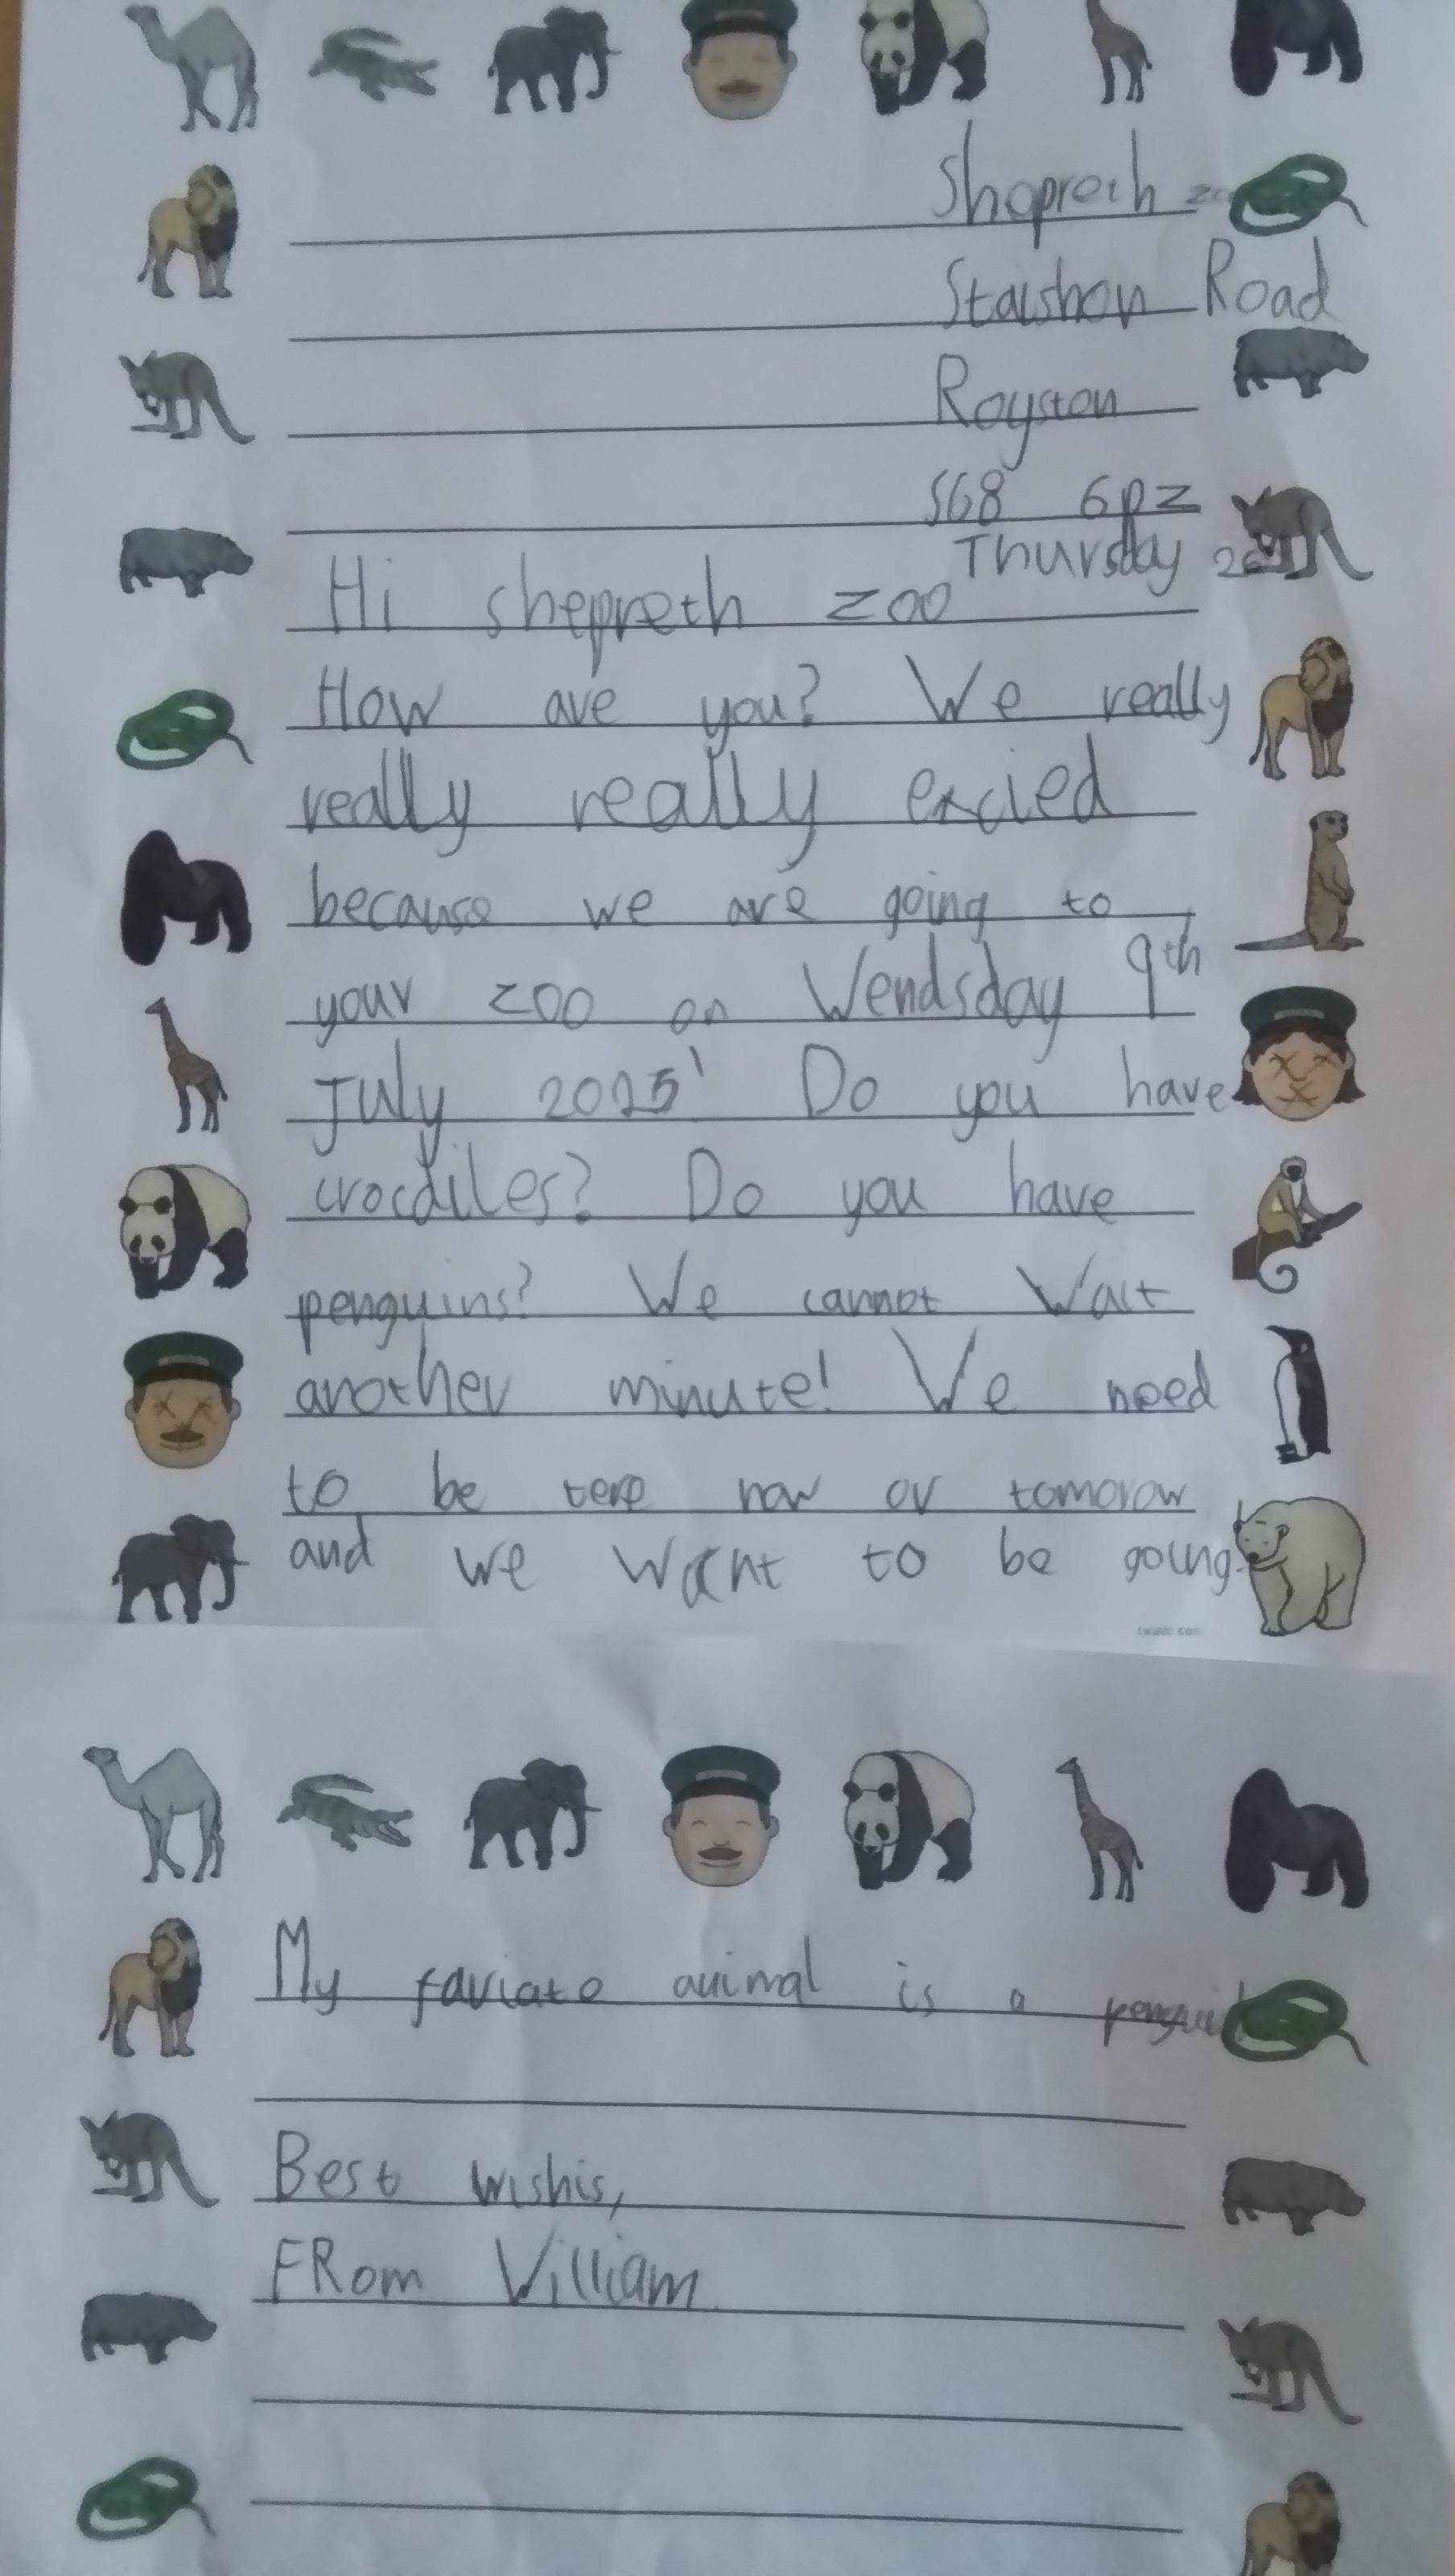 Shepreth zoo
Staishon Road
Royston
SG8 6pz
Thursday 26
Hi shepreth zoo
How are you? We really
really really excied
because we are going to
your zoo on Wendsday 9th
July 2025! Do you have
crocdiles? Do you have
penguins? We cannot Wait
another minute! We need
to be tere now or tomorow
and we want to be going.
twinkl.com
My faviate animal is a penguin
Best wishis,
FRom William